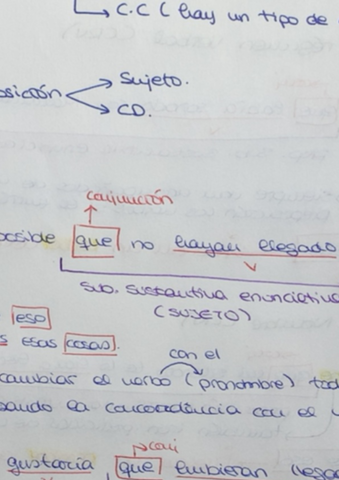 ↳ C.C (hay un tipo de
osición → Sujeto.
→ CD.
conjunción
posible que no hayan llegado
V
sub. sustantiva enunciativa
(SUJETO)
eso
s esas cosas.
con el
cambiar el verbo (pronombre) tod
sando la concordancia con el v
conj
gustaría que hubieran llega